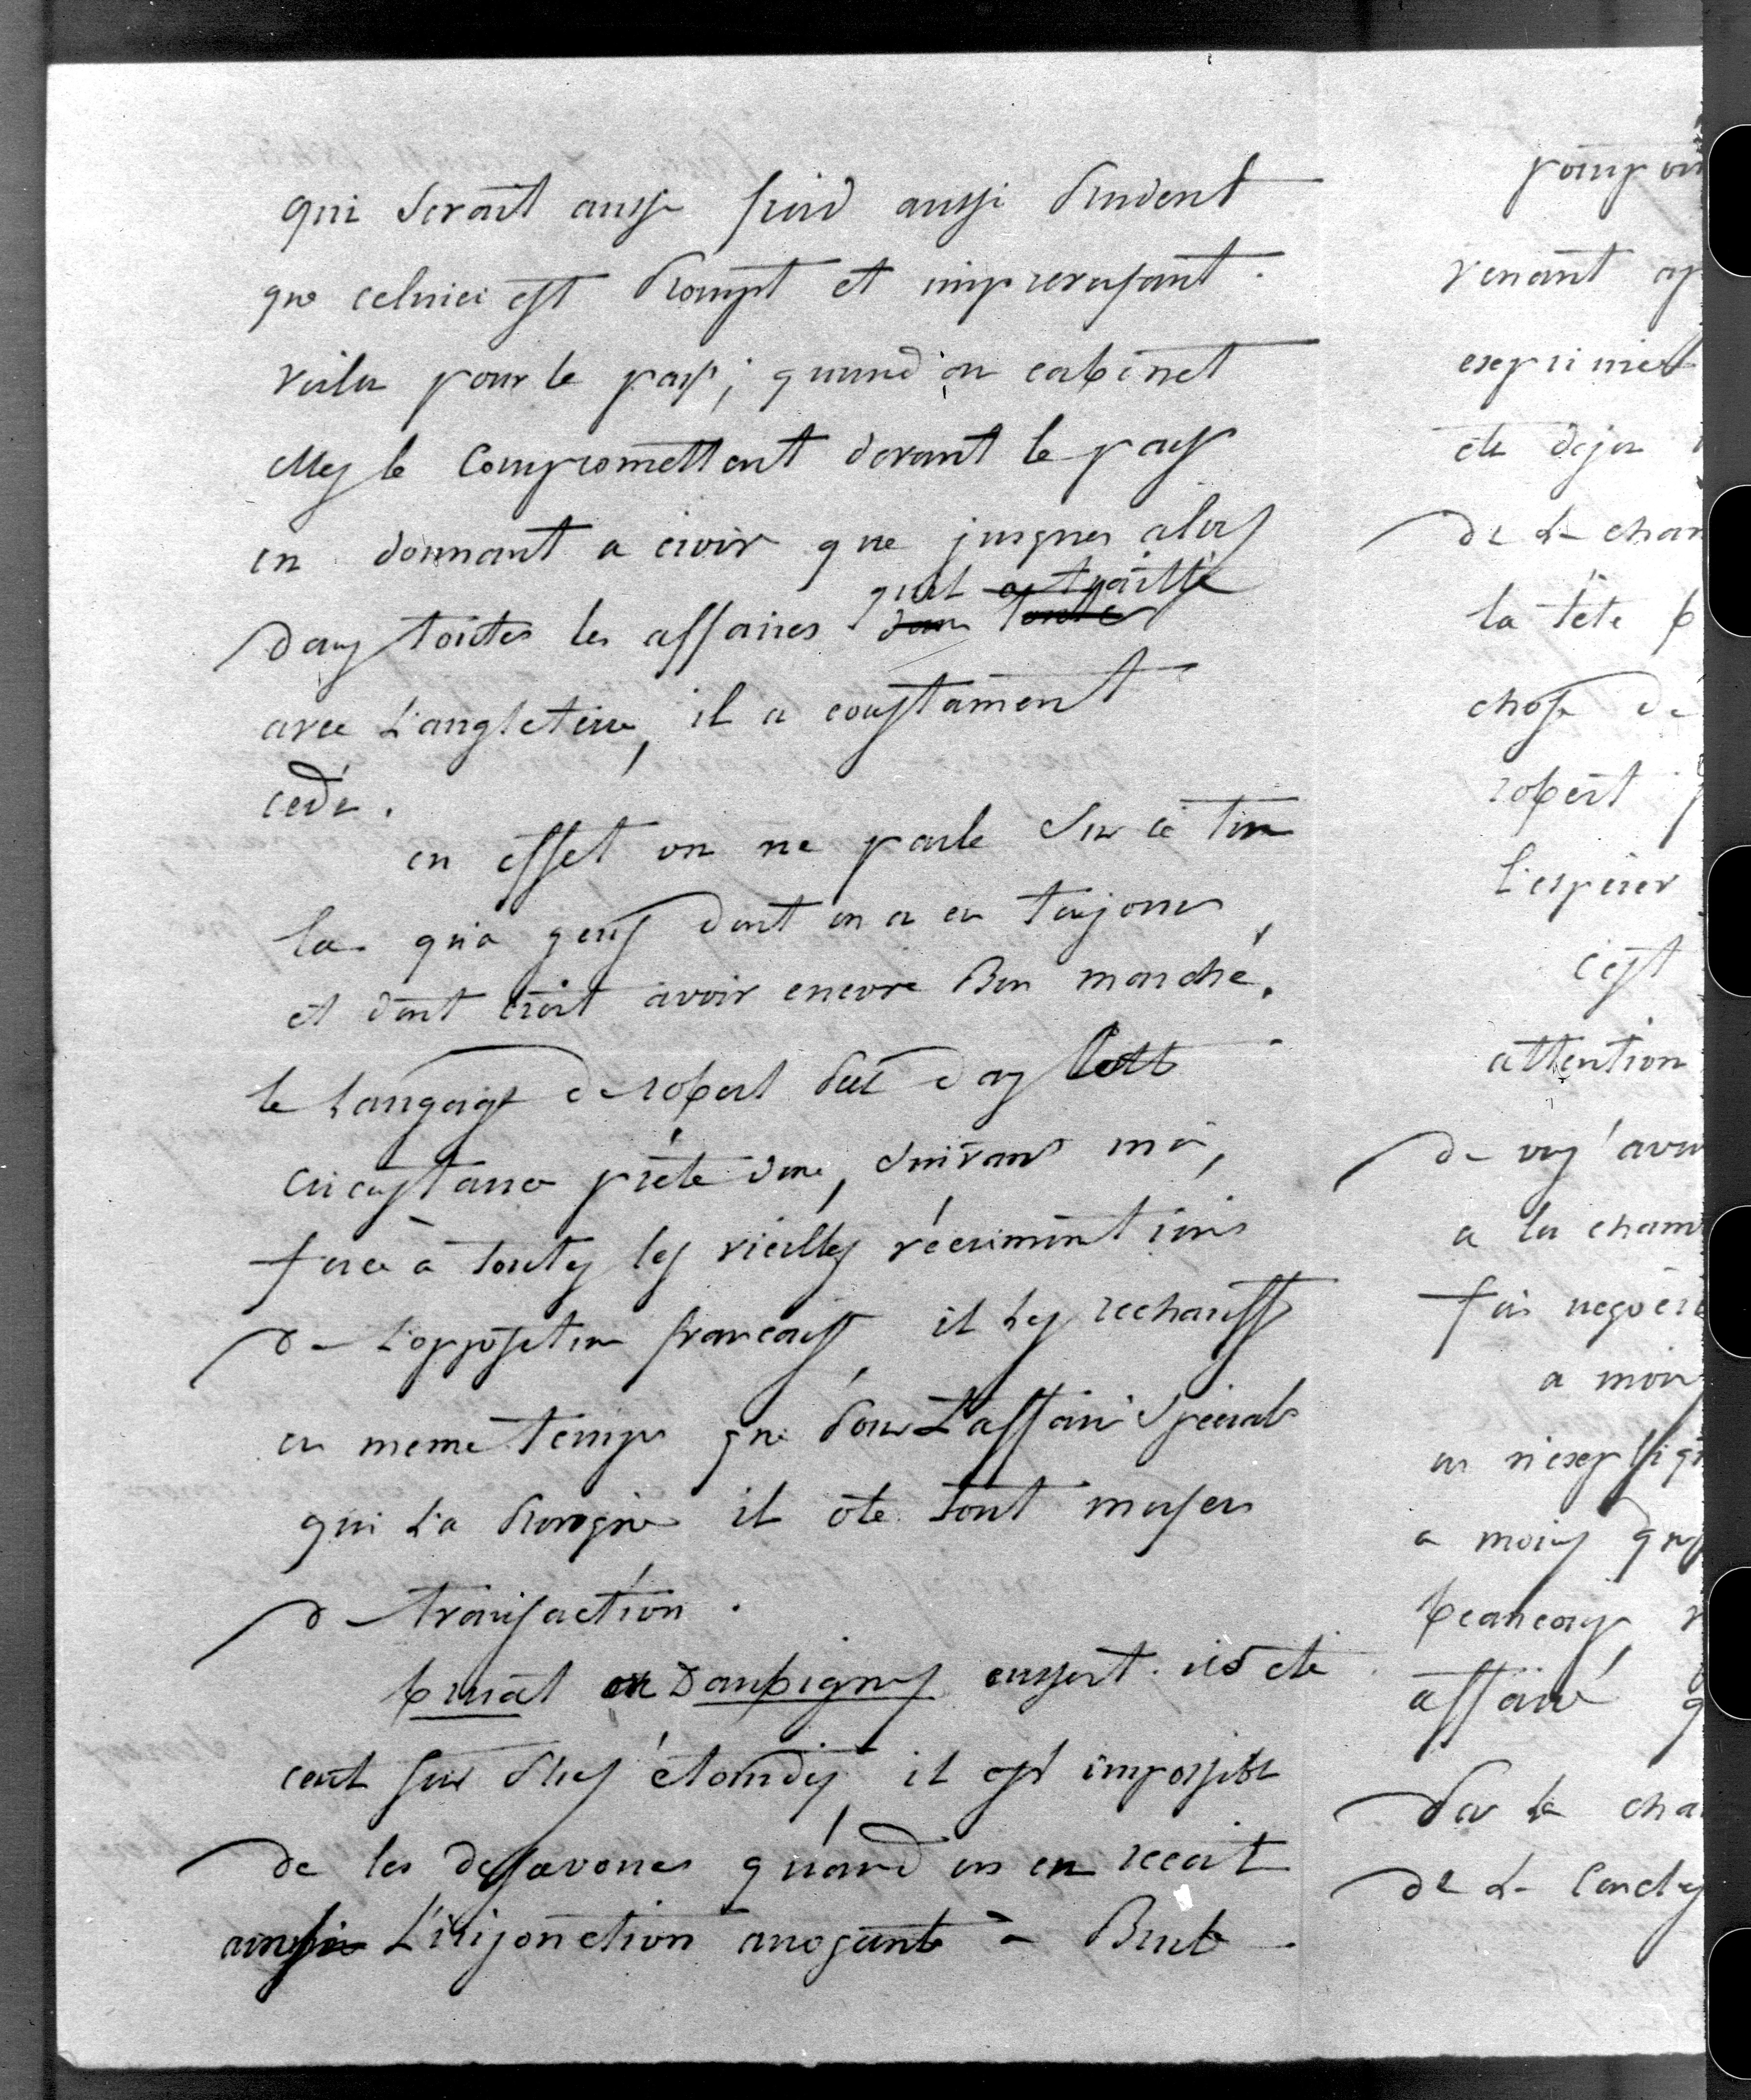 qui serait aussi froid aussi prudent
que celuici est prompt et imprevoyant.
voila pour le pays; quand au cabinet
elles le compromettent devant le pays
en donnant a croir que jusques alors
qu'il a traitté
dans toutes les affaires dans toutte
avec L'angleterre, il a constament
cedé.
en effet on ne parle sur ce ton
la qu'a gens dont on a eu toujours
et dont croit avoir encore Bon marché.
le Langage de robert peel dans cette
circonstance prete donc, suivant moi,
force à toutes les vieilles récriminations
de L'opposition francaise, il Les rechauffe
en meme temps que pour L'affaire Speciale
qui L'a provoqué il ôte tout moyen
de transaction.
bruat et Daubigny eussent ils eté
cent fois plus étourdis il est impossible
de les desavouer quand on en recoit
ainsi L'injonction arrogante - Brute -
pong
venant
exprimer
eté deja
de La cham
la tête
chose
robert
L'esperer
c'est
attention
de
a la cham
fois
a moins
on n'expliq
a moins
beaucoup
affaire
par La cha
de L